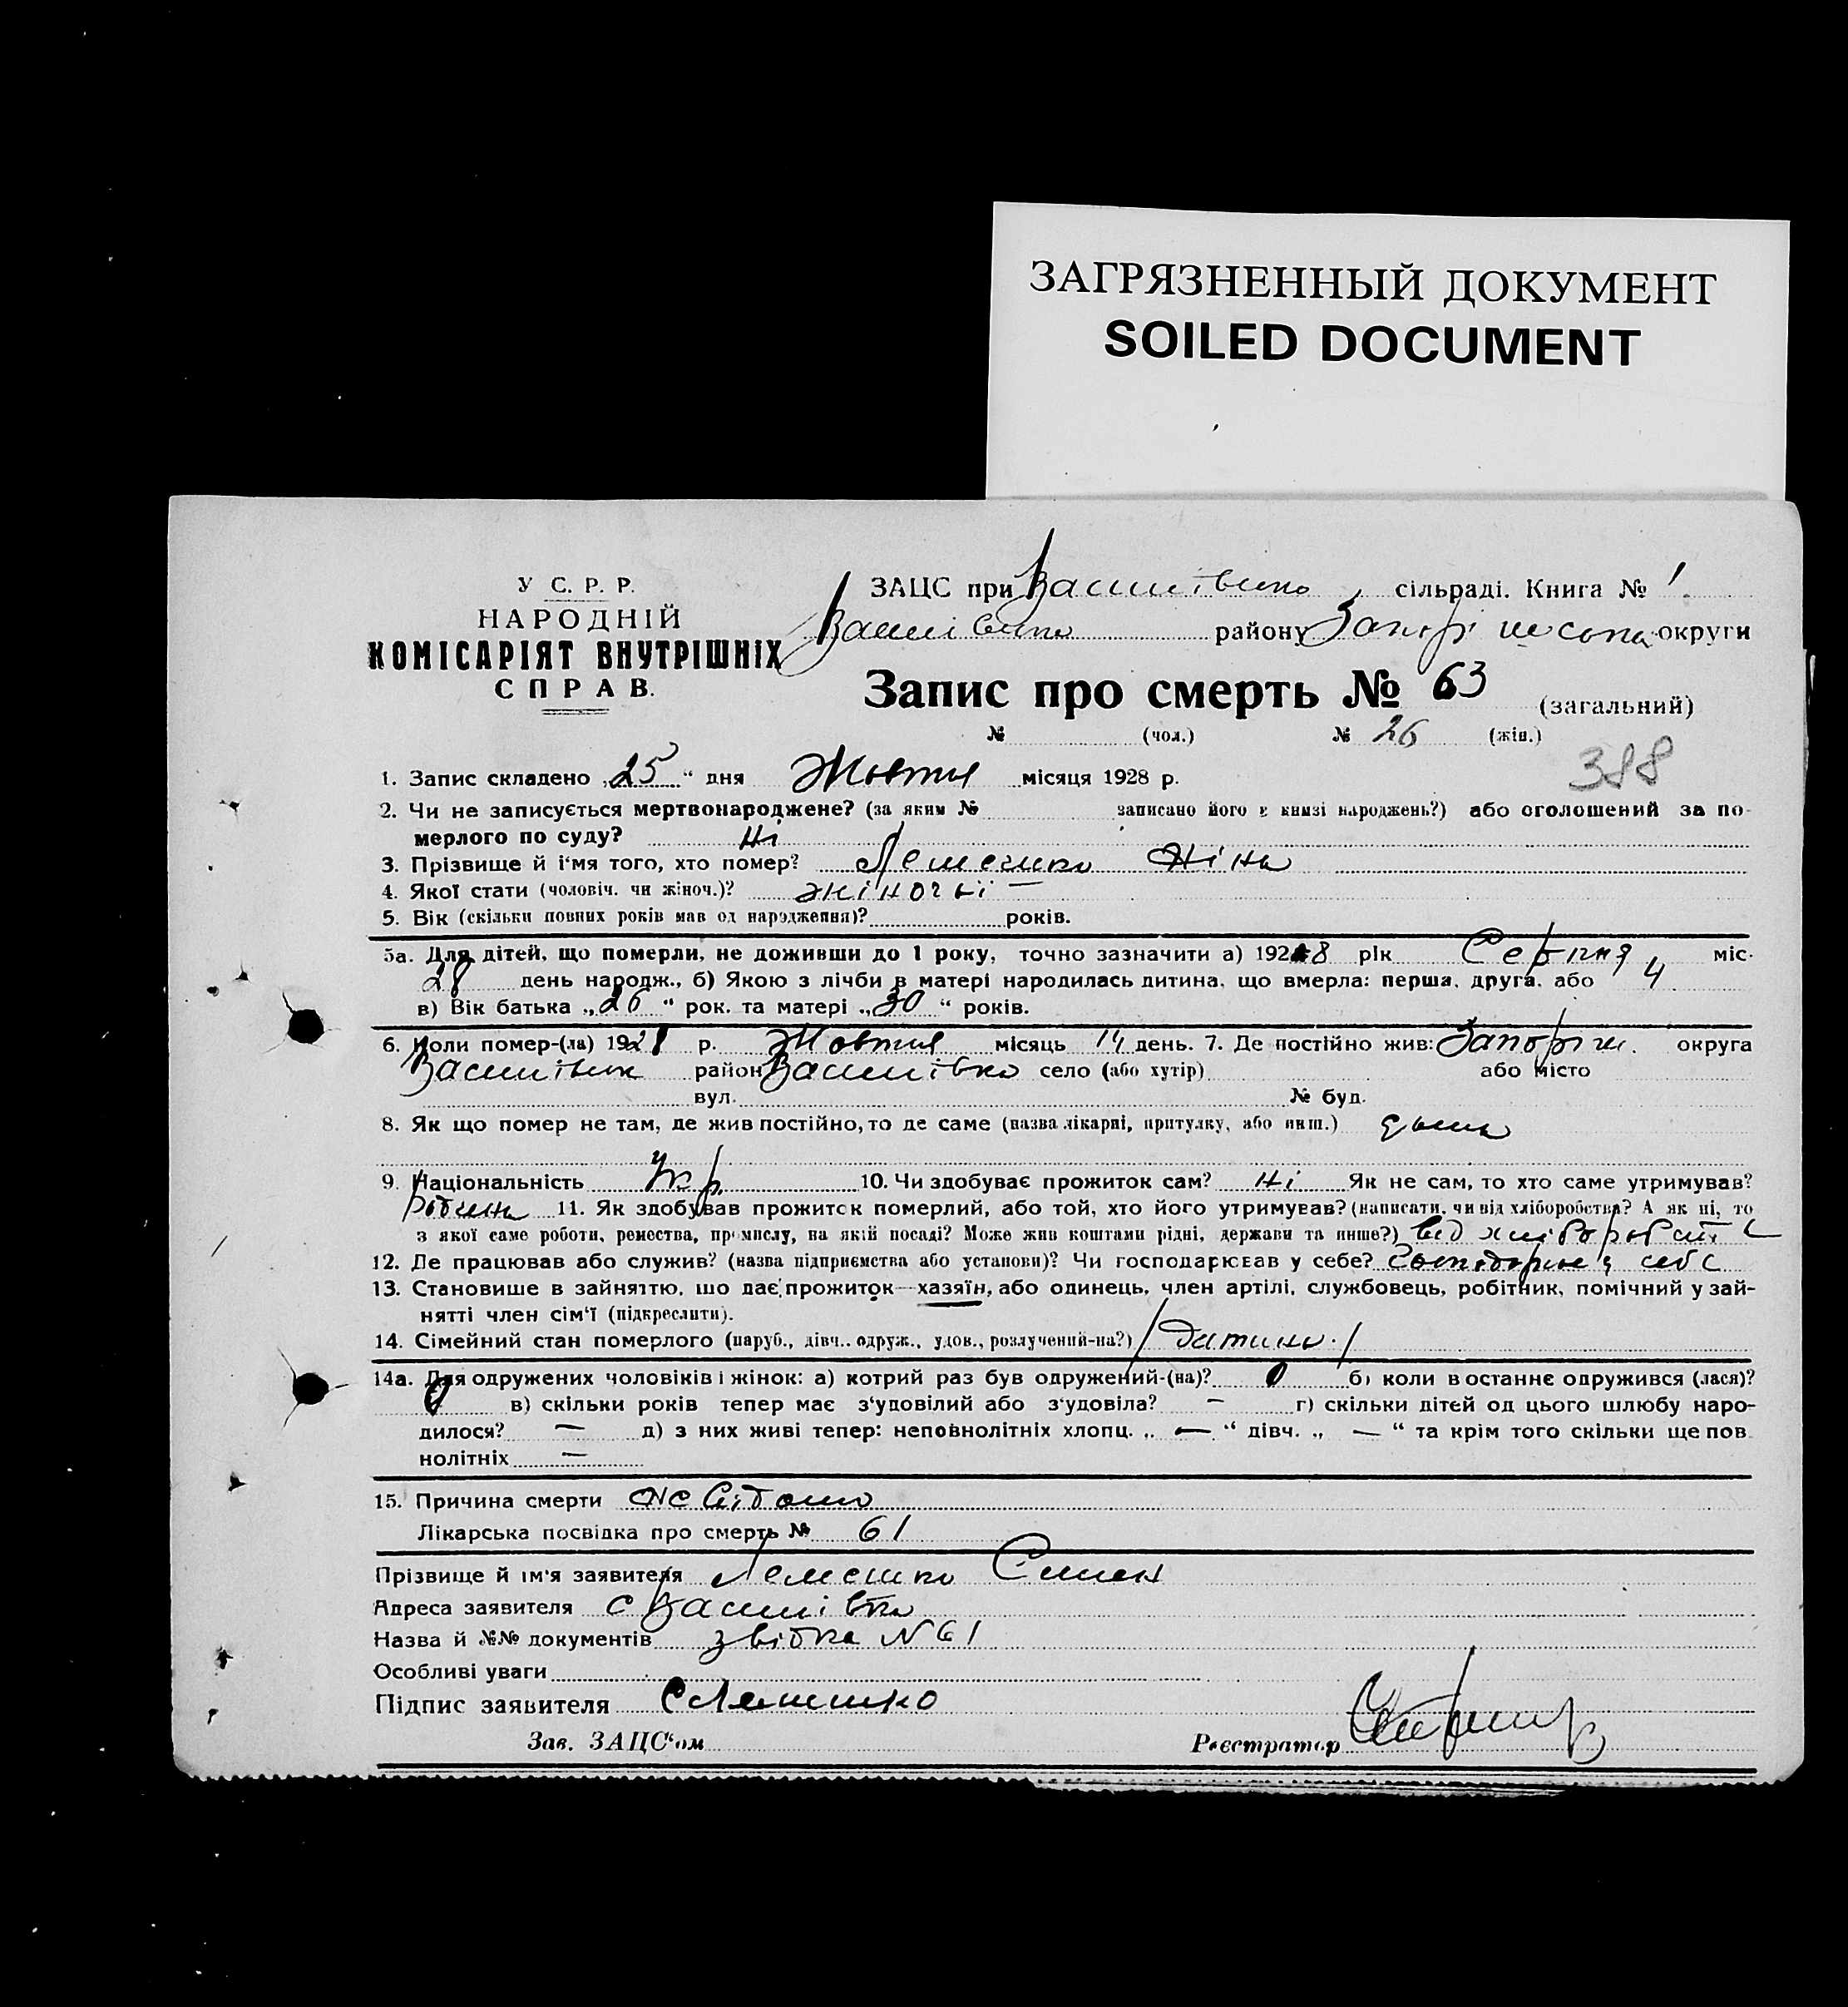 ЗАГРЯЗНЕННЫЙ ДОКУМЕНТ
SOILED DOCUMENT
У С. Р. Р.
НАРОДНІЙ
КОМІСАРІЯТ ВНУТРІШНІХ
СПРАВ.
ЗАЦС при Василівській сільраді. Книга № 1
району округи
Запис про смерть № 63 (загальний)
№ (чол.) № 26 (жін.)
388
1. Запис складено „25“ дня Жовтня місяця 1928 р.
2. Чи не записується мертвонароджене? (за яким № записано його в книзі народжень?) або оголошений за по-
мерлого по суду? Ні
3. Прізвище й і‘мя того, хто помер? Лемешко Ніна
4. Якої стати (чоловіч. чи жіноч.)? жіночої —
5. Вік (скільки повних років мав од народження)? років.
5а. Для дітей, що померли, не доживши до 1 року, точно зазначити а) 1928 рік Серпня міс.
28 день народж., б) Якою з лічби в матері народилась дитина, що вмерла: перша, друга, або 4
в) Вік батька „26“ рок. та матері „30“ років.
6. Коли помер-(ла) 1928 р. Жовтня місяць 14 день. 7. Де постійно жив: Запоріж. округа
район Василівка село (або хутір) або місто
вул. № буд.
8. Як що помер не там, де жив постійно, то де саме (назва лікарні, притулку, або инш.) дома
9. Національність Укр. 10. Чи здобуває прожиток сам? Ні Як не сам, то хто саме утримував?
11. Як здобував прожиток померлий, або той, хто його утримував? (написати, чи від хліборобства? А як ні, то
з якої саме роботи, ремества, промислу, на якій посаді? Може жив коштами рідні, держави та инше?) від хліборобства
12. Де працював або служив? (назва підприємства або установи)? Чи господарював у себе? у себе
13. Становище в зайняттю, що дає прожиток—хазяїн, або одинець, член артілі, службовець, робітник, помічний у зай-
нятті член сім‘ї (підкреслити).
14. Сімейний стан померлого (паруб., дівч., одруж., удов., розлучений-на?) / Дитина /
14а. Для одружених чоловіків і жінок: а) котрий раз був одружений-(на)? 0 б) коли востаннє одружився (лася)?
0 в) скільки років тепер має з‘удовілий або з‘удовіла? — г) скільки дітей од цього шлюбу наро-
дилося? — д) з них живі тепер: неповнолітніх хлопц. „ — “ дівч. „ — “ та крім того скільки ще пов
нолітніх —
15. Причина смерти Не відомо
Лікарська посвідка про смерть № 61
Прізвище й ім‘я заявителя Лемешко Семен
Адреса заявителя с Василівка
Назва й №№ документів звідка N 61
Особливі уваги
Підпис заявителя СЛемешко
Зав. ЗАЦС‘ом Реєстратор